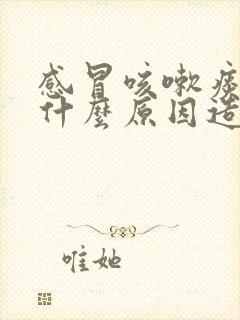 感冒咳嗽痰
什麼原因造
唯她